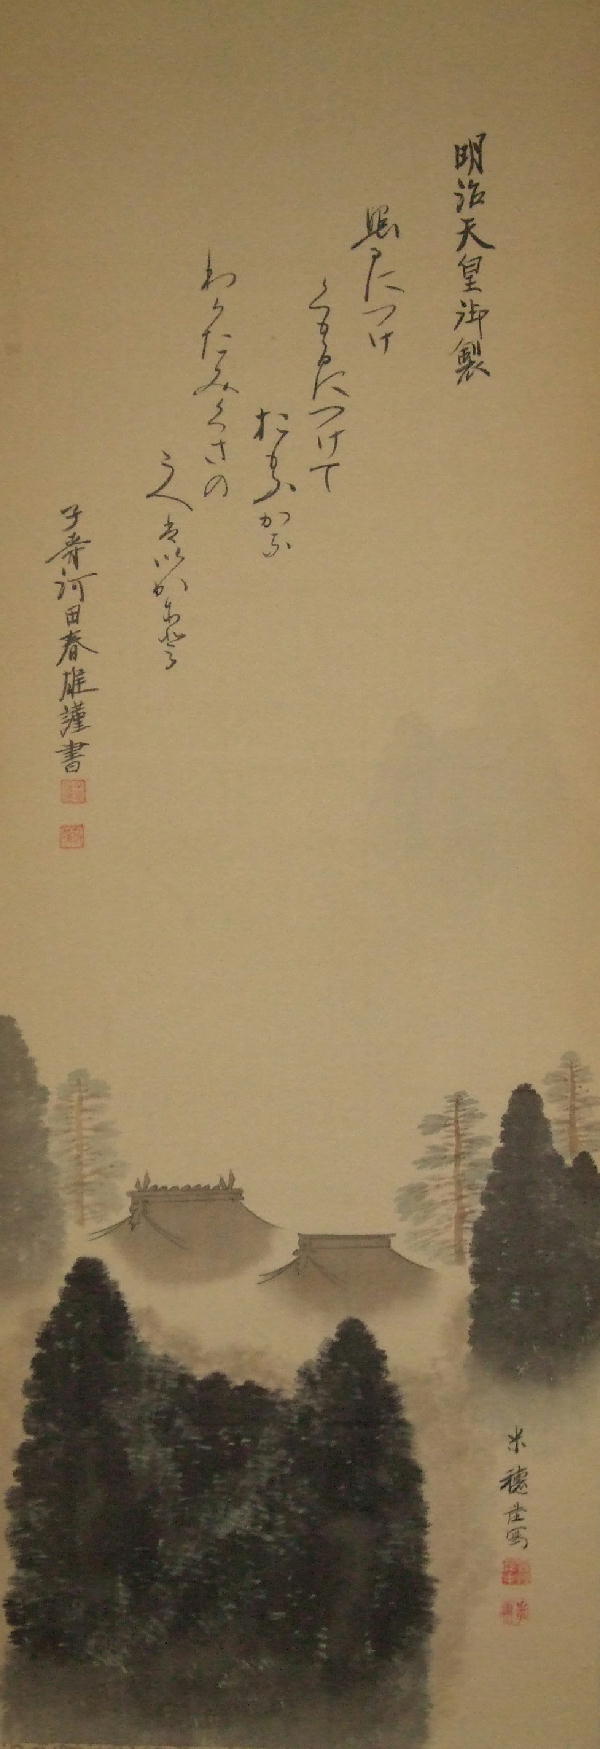 明治天皇御製
照るにつけ
くもるにつけて
おもふかな
わかたみくさの
うへ者以か尓登
子爵河田春雄謹書
米穂 写